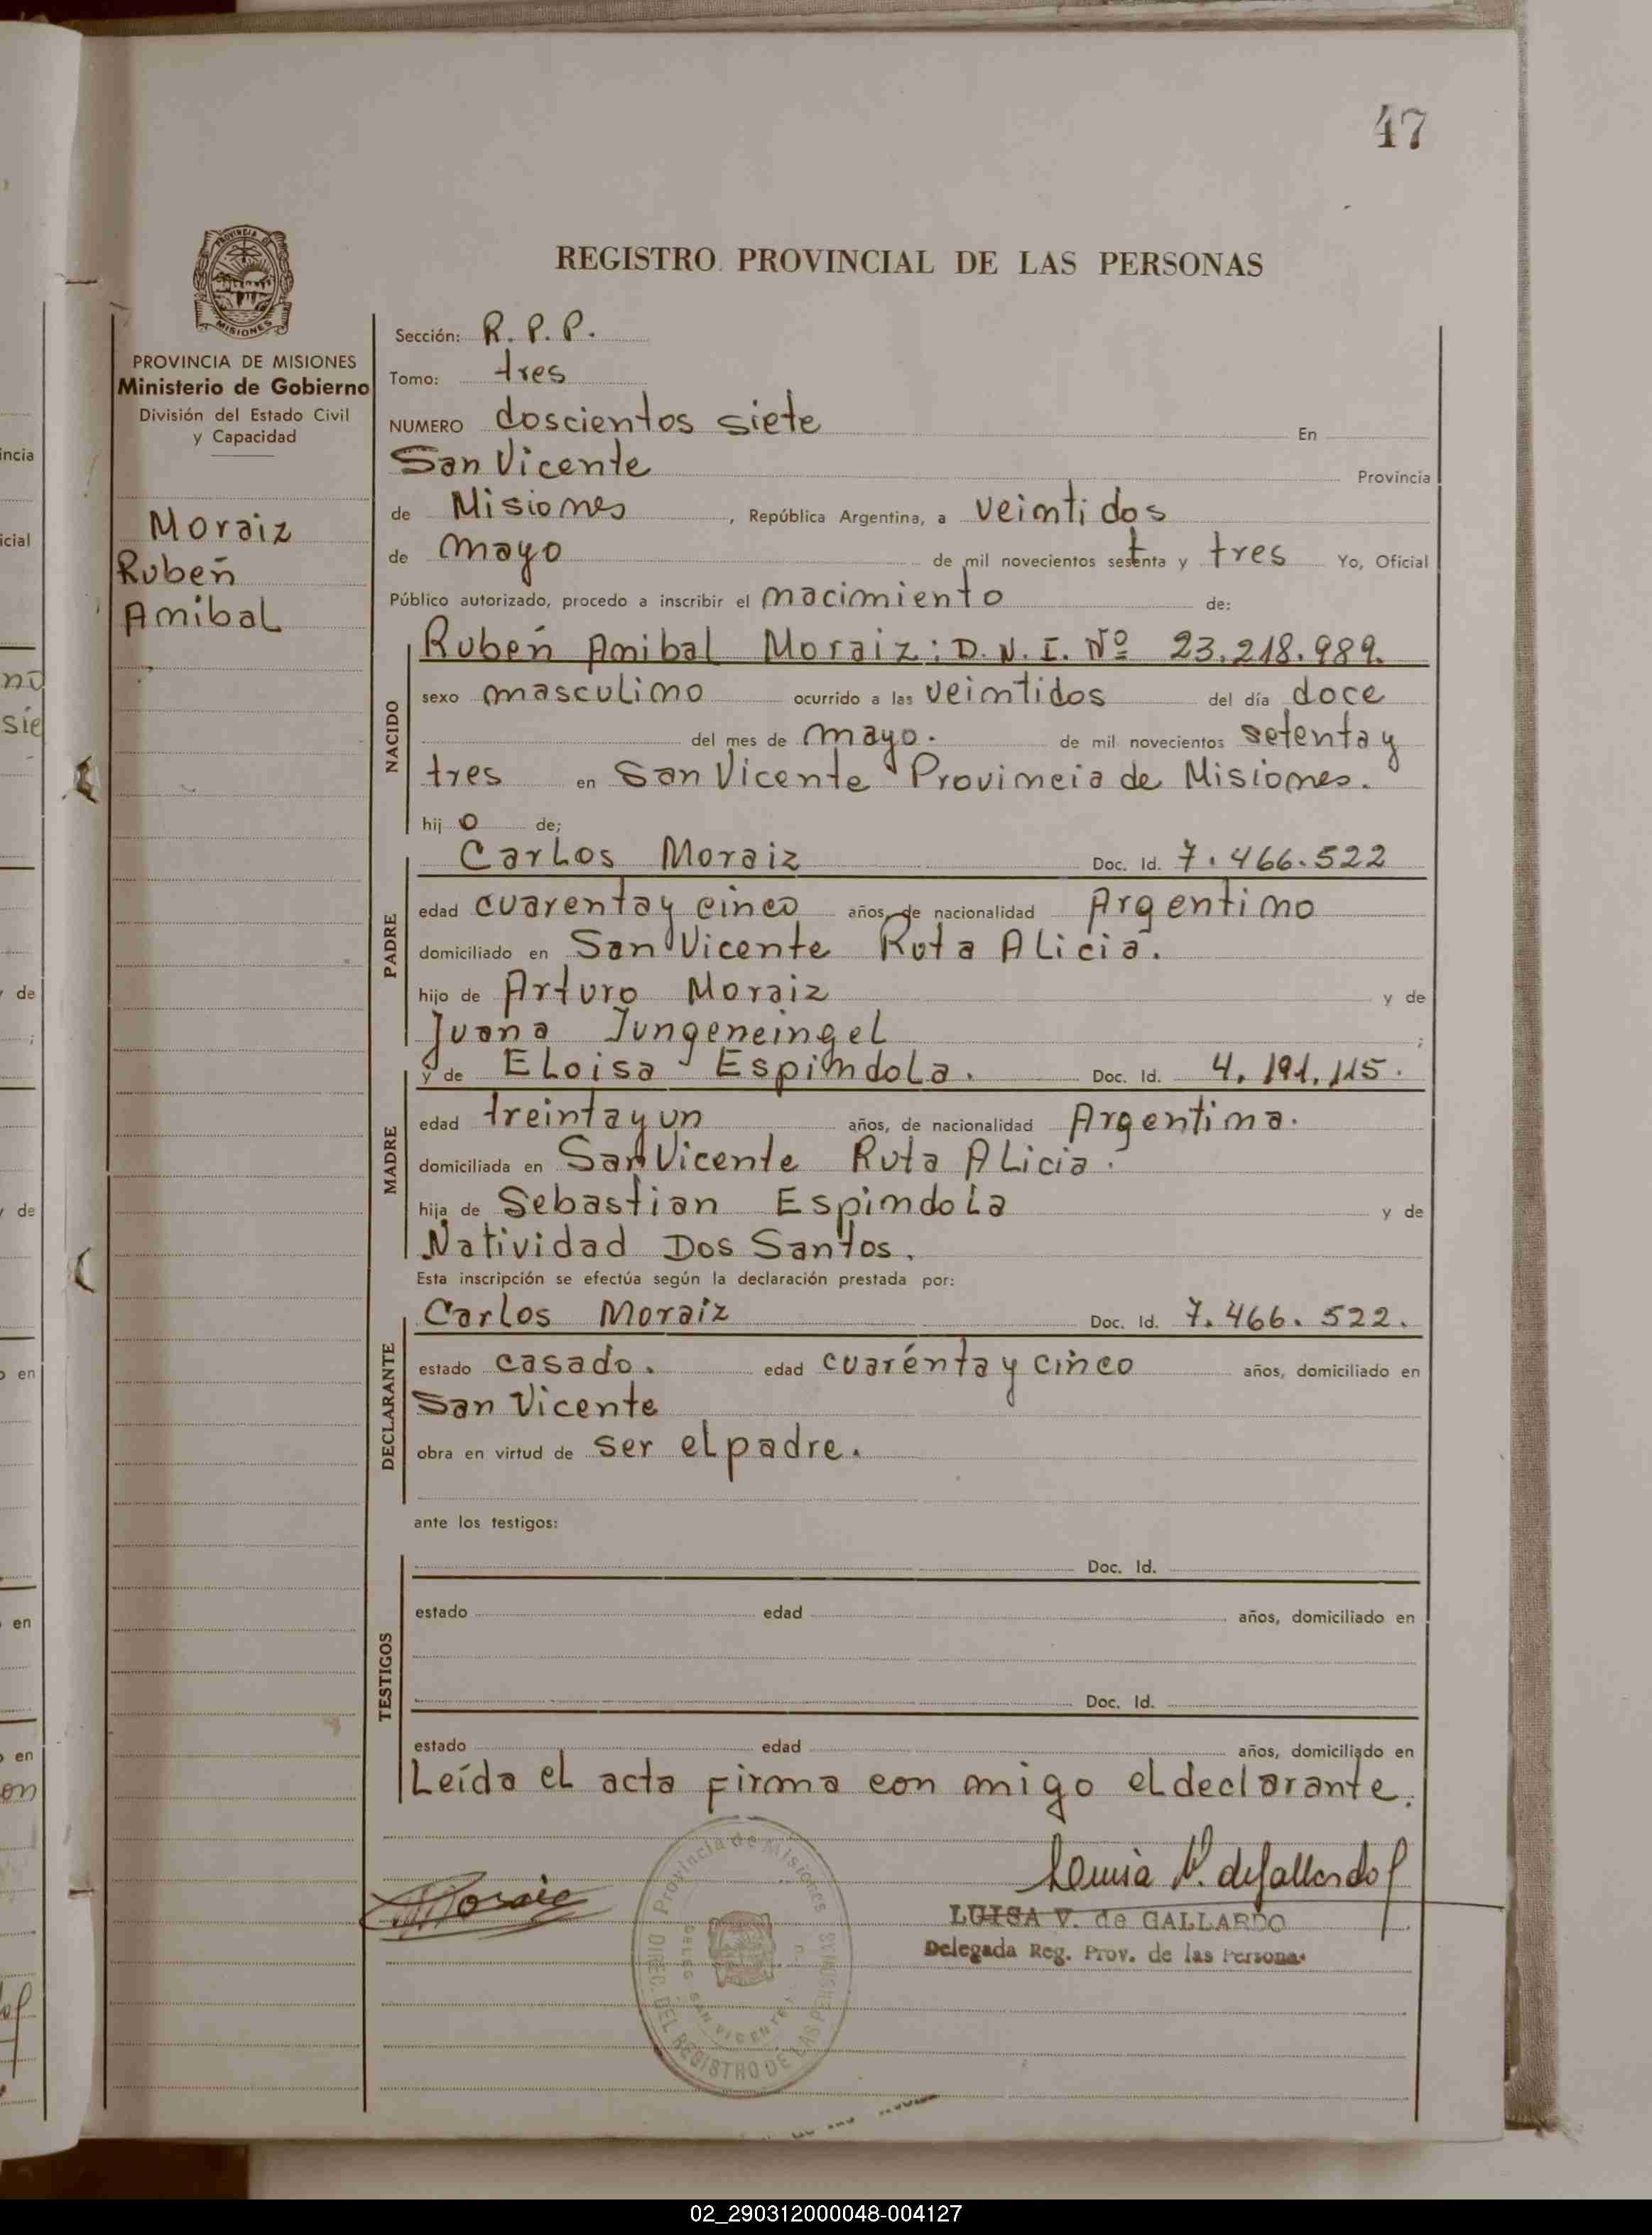 47
REGISTRO PROVINCIAL DE LAS PERSONAS
PROVINCIA DE
MISIONES
PROVINCIA DE MISIONES
Ministerio de Gobierno
División del Estado Civil
y Capacidad
Moraiz
Rubén
Anibal
Sección: R. P. P.
Tomo: tres
NUMERO doscientos siete En
San Vicente Provincia
de Misiones, República Argentina, a veintidos
de mayo de mil novecientos setenta y tres Yo, Oficial
Público autorizado, procedo a inscribir el nacimiento de:
NACIDO
Rubén Anibal Moraiz: D. N. I. Nº 23.218.989.
sexo masculino ocurrido a las veintidos del día doce
del mes de mayo. de mil novecientos setenta y
tres en San Vicente Provincia de Misiones.
hij o de;
PADRE
Carlos Moraiz Doc. Id. 7.466.522
edad cuarenta y cinco años, de nacionalidad Argentino
domiciliado en San Vicente Ruta Alicia.
hijo de Arturo Moraiz y de
Juana Jungeneingel ;
MADRE
y de Eloisa Espindola. Doc. Id. 4.191.115.
edad treinta y un años, de nacionalidad Argentina.
domiciliada en San Vicente Ruta Alicia.
hija de Sebastian Espindola y de
Natividad Dos Santos.
Esta inscripción se efectúa según la declaración prestada por:
DECLARANTE
Carlos Moraiz Doc. Id. 7.466.522.
estado casado. edad cuarenta y cinco años, domiciliado en
San Vicente
obra en virtud de ser el padre.
ante los testigos:
TESTIGOS
Doc. Id.
estado edad años, domiciliado en
Doc. Id.
estado edad años, domiciliado en
Leída el acta firma con migo el declarante.
Moraiz
Provincia de Misiones
DIREC. DEL REGISTRO DE LAS PERSONAS
DELEG. SAN VICENTE
Luisa V. de Gallardo
LUISA V. de GALLARDO
Delegada Reg. Prov. de las Personas
02_290312000048-004127